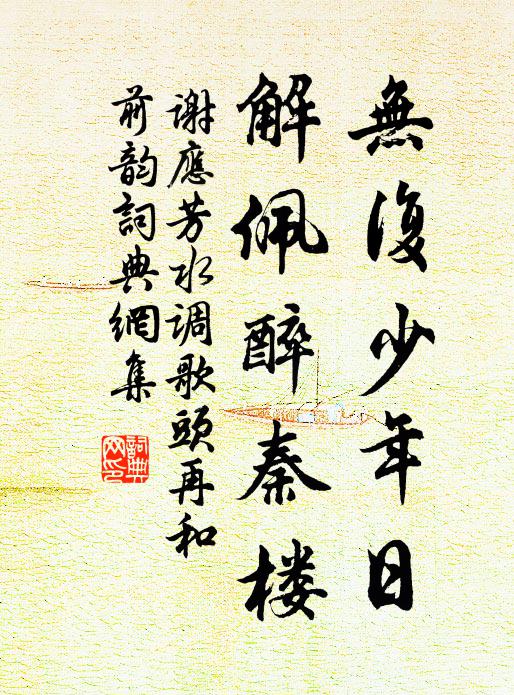 無復少年日
解佩醉秦楼
謝應芳水调歌頭再和
前韵詞典網集
詞典
网印